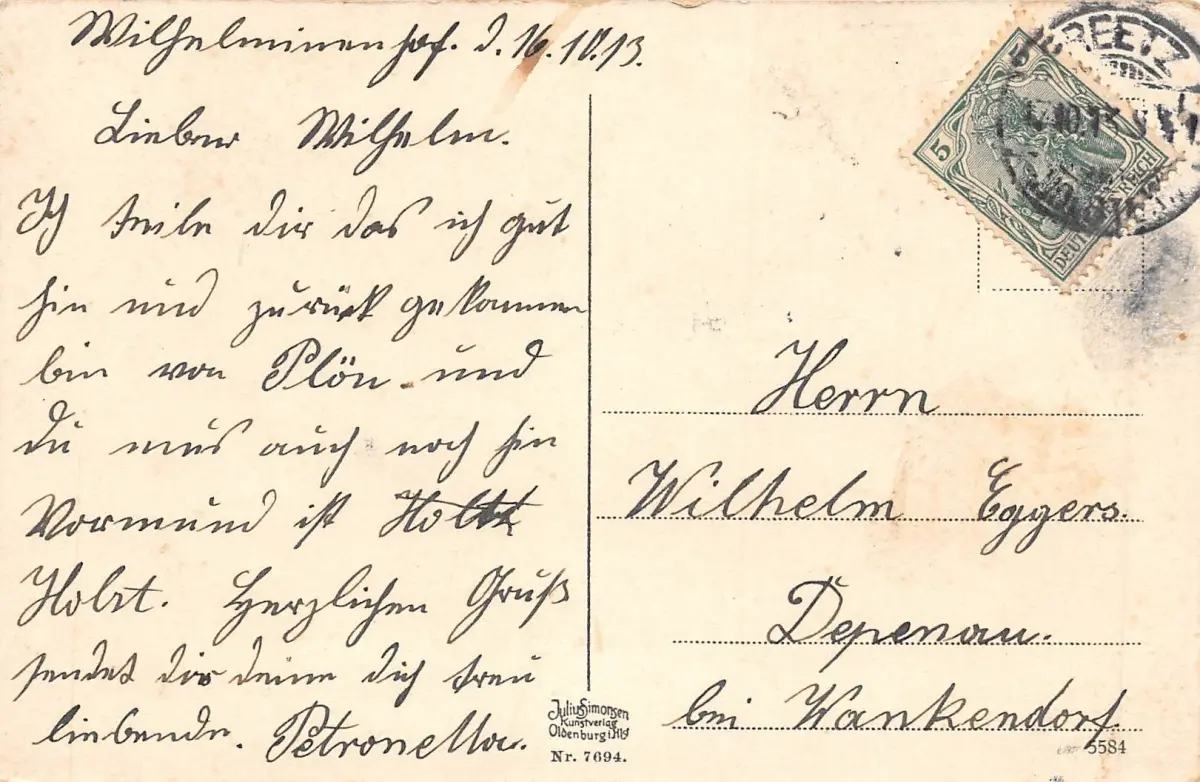 Wilhelminenhof. d. 16.10.13.
Lieber Wilhelm.
Ich teile dir das ich gut
hin und zurück gekommen
bin von Plön und
du mus auch noch hin
Vormund ist
Holst. Herzlichen Gruß
sendet dir deine dich treu
liebende. Petronella.
PREETZ
10.13
5
DEUTSCHES REICH
Herrn
Wilhelm Eggers.
Depenau.
bei Wankendorf.
Julius Simonsen
Kunstverlag
Oldenburg i. Hlst
Nr. 7694.
5584